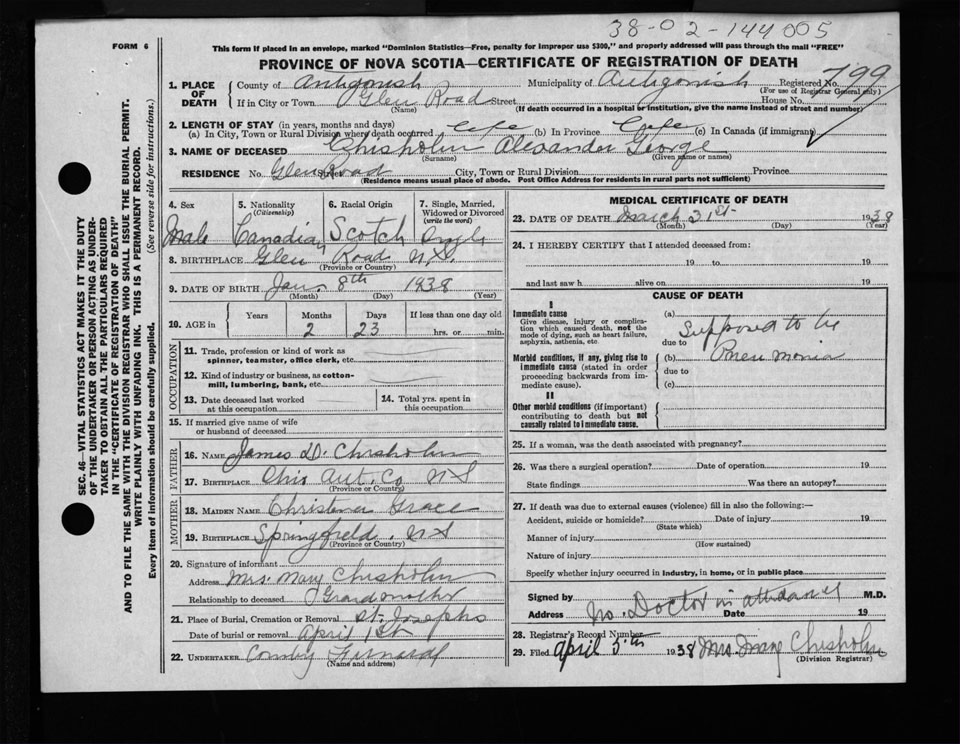 38-02-144005
FORM 6
This form if placed in an envelope, marked "Dominion Statistics—Free, penalty for improper use $300," and properly addressed will pass through the mail "FREE"
PROVINCE OF NOVA SCOTIA—CERTIFICATE OF REGISTRATION OF DEATH
1. PLACE OF DEATH County of Antigonish Municipality of Antigonish Registered No. 799
(For use of Registrar General only)
If in City or Town Glen Road Street House No.
(Name) (If death occurred in a hospital or institution, give the name instead of street and number)
2. LENGTH OF STAY (in years, months and days)
(a) In City, Town or Rural Division where death occurred Life (b) In Province Life (c) In Canada (if immigrant)
3. NAME OF DECEASED Chisholm Alexander George
(Surname) (Given name or names)
RESIDENCE No. Glen Road City, Town or Rural Division Province
(Residence means usual place of abode. Post Office Address for residents in rural parts not sufficient)
4. Sex 5. Nationality (Citizenship) 6. Racial Origin 7. Single, Married, Widowed or Divorced (write the word)
Male Canadian Scotch Single
8. BIRTHPLACE Glen Road N.S.
(Province or Country)
9. DATE OF BIRTH Jan. 8th 1938
(Month) (Day) (Year)
10. AGE in Years Months Days If less than one day old
2 23 hrs. or min.
OCCUPATION
11. Trade, profession or kind of work as spinner, teamster, office clerk, etc.
12. Kind of industry or business, as cotton-mill, lumbering, bank, etc.
13. Date deceased last worked at this occupation 14. Total yrs. spent in this occupation
15. If married give name of wife or husband of deceased
FATHER
16. NAME James D. Chisholm
17. BIRTHPLACE Ohio Ant. Co N S
(Province or Country)
MOTHER
18. MAIDEN NAME Christena Grace
19. BIRTHPLACE Springfield, N S
(Province or Country)
20. Signature of informant
Address Mrs. Mary Chisholm
Relationship to deceased Grandmother
21. Place of Burial, Cremation or Removal St. Josephs
Date of burial or removal April 1st
22. UNDERTAKER
(Name and address)
MEDICAL CERTIFICATE OF DEATH
23. DATE OF DEATH March 31st 1938
(Month) (Day) (Year)
24. I HEREBY CERTIFY that I attended deceased from:
19 to 19
and last saw h alive on 19
CAUSE OF DEATH
I
Immediate cause
Give disease, injury or complication which caused death, not the mode of dying, such as heart failure, asphyxia, asthenia, etc.
Morbid conditions, if any, giving rise to immediate cause (stated in order proceeding backwards from immediate cause).
II
Other morbid conditions (if important) contributing to death but not causally related to immediate cause.
(a) Supposed to be
due to
(b) Pneu monia
due to
(c)
25. If a woman, was the death associated with pregnancy?
26. Was there a surgical operation? Date of operation 19
State findings Was there an autopsy?
27. If death was due to external causes (violence) fill in also the following:—
Accident, suicide or homicide? Date of injury 19
(State which)
Manner of injury
(How sustained)
Nature of injury
Specify whether injury occurred in industry, in home, or in public place
Signed by M.D.
No. Doctor in attendance
Address Date 19
28. Registrar's Record Number
29. Filed April 5th 1938 Mrs. Mary Chisholm
(Division Registrar)
SEC. 46—VITAL STATISTICS ACT MAKES IT THE DUTY
OF THE UNDERTAKER OR PERSON ACTING AS UNDER-
TAKER TO OBTAIN ALL THE PARTICULARS REQUIRED
IN THE "CERTIFICATE OF REGISTRATION OF DEATH"
AND TO FILE THE SAME WITH THE DIVISION REGISTRAR WHO SHALL ISSUE THE BURIAL PERMIT.
WRITE PLAINLY WITH UNFADING INK. THIS IS A PERMANENT RECORD.
Every item of information should be carefully supplied. (See reverse side for instructions.)